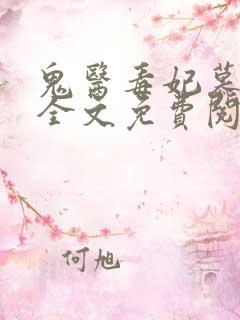 鬼醫毒妃慕
全文免費閱
何旭